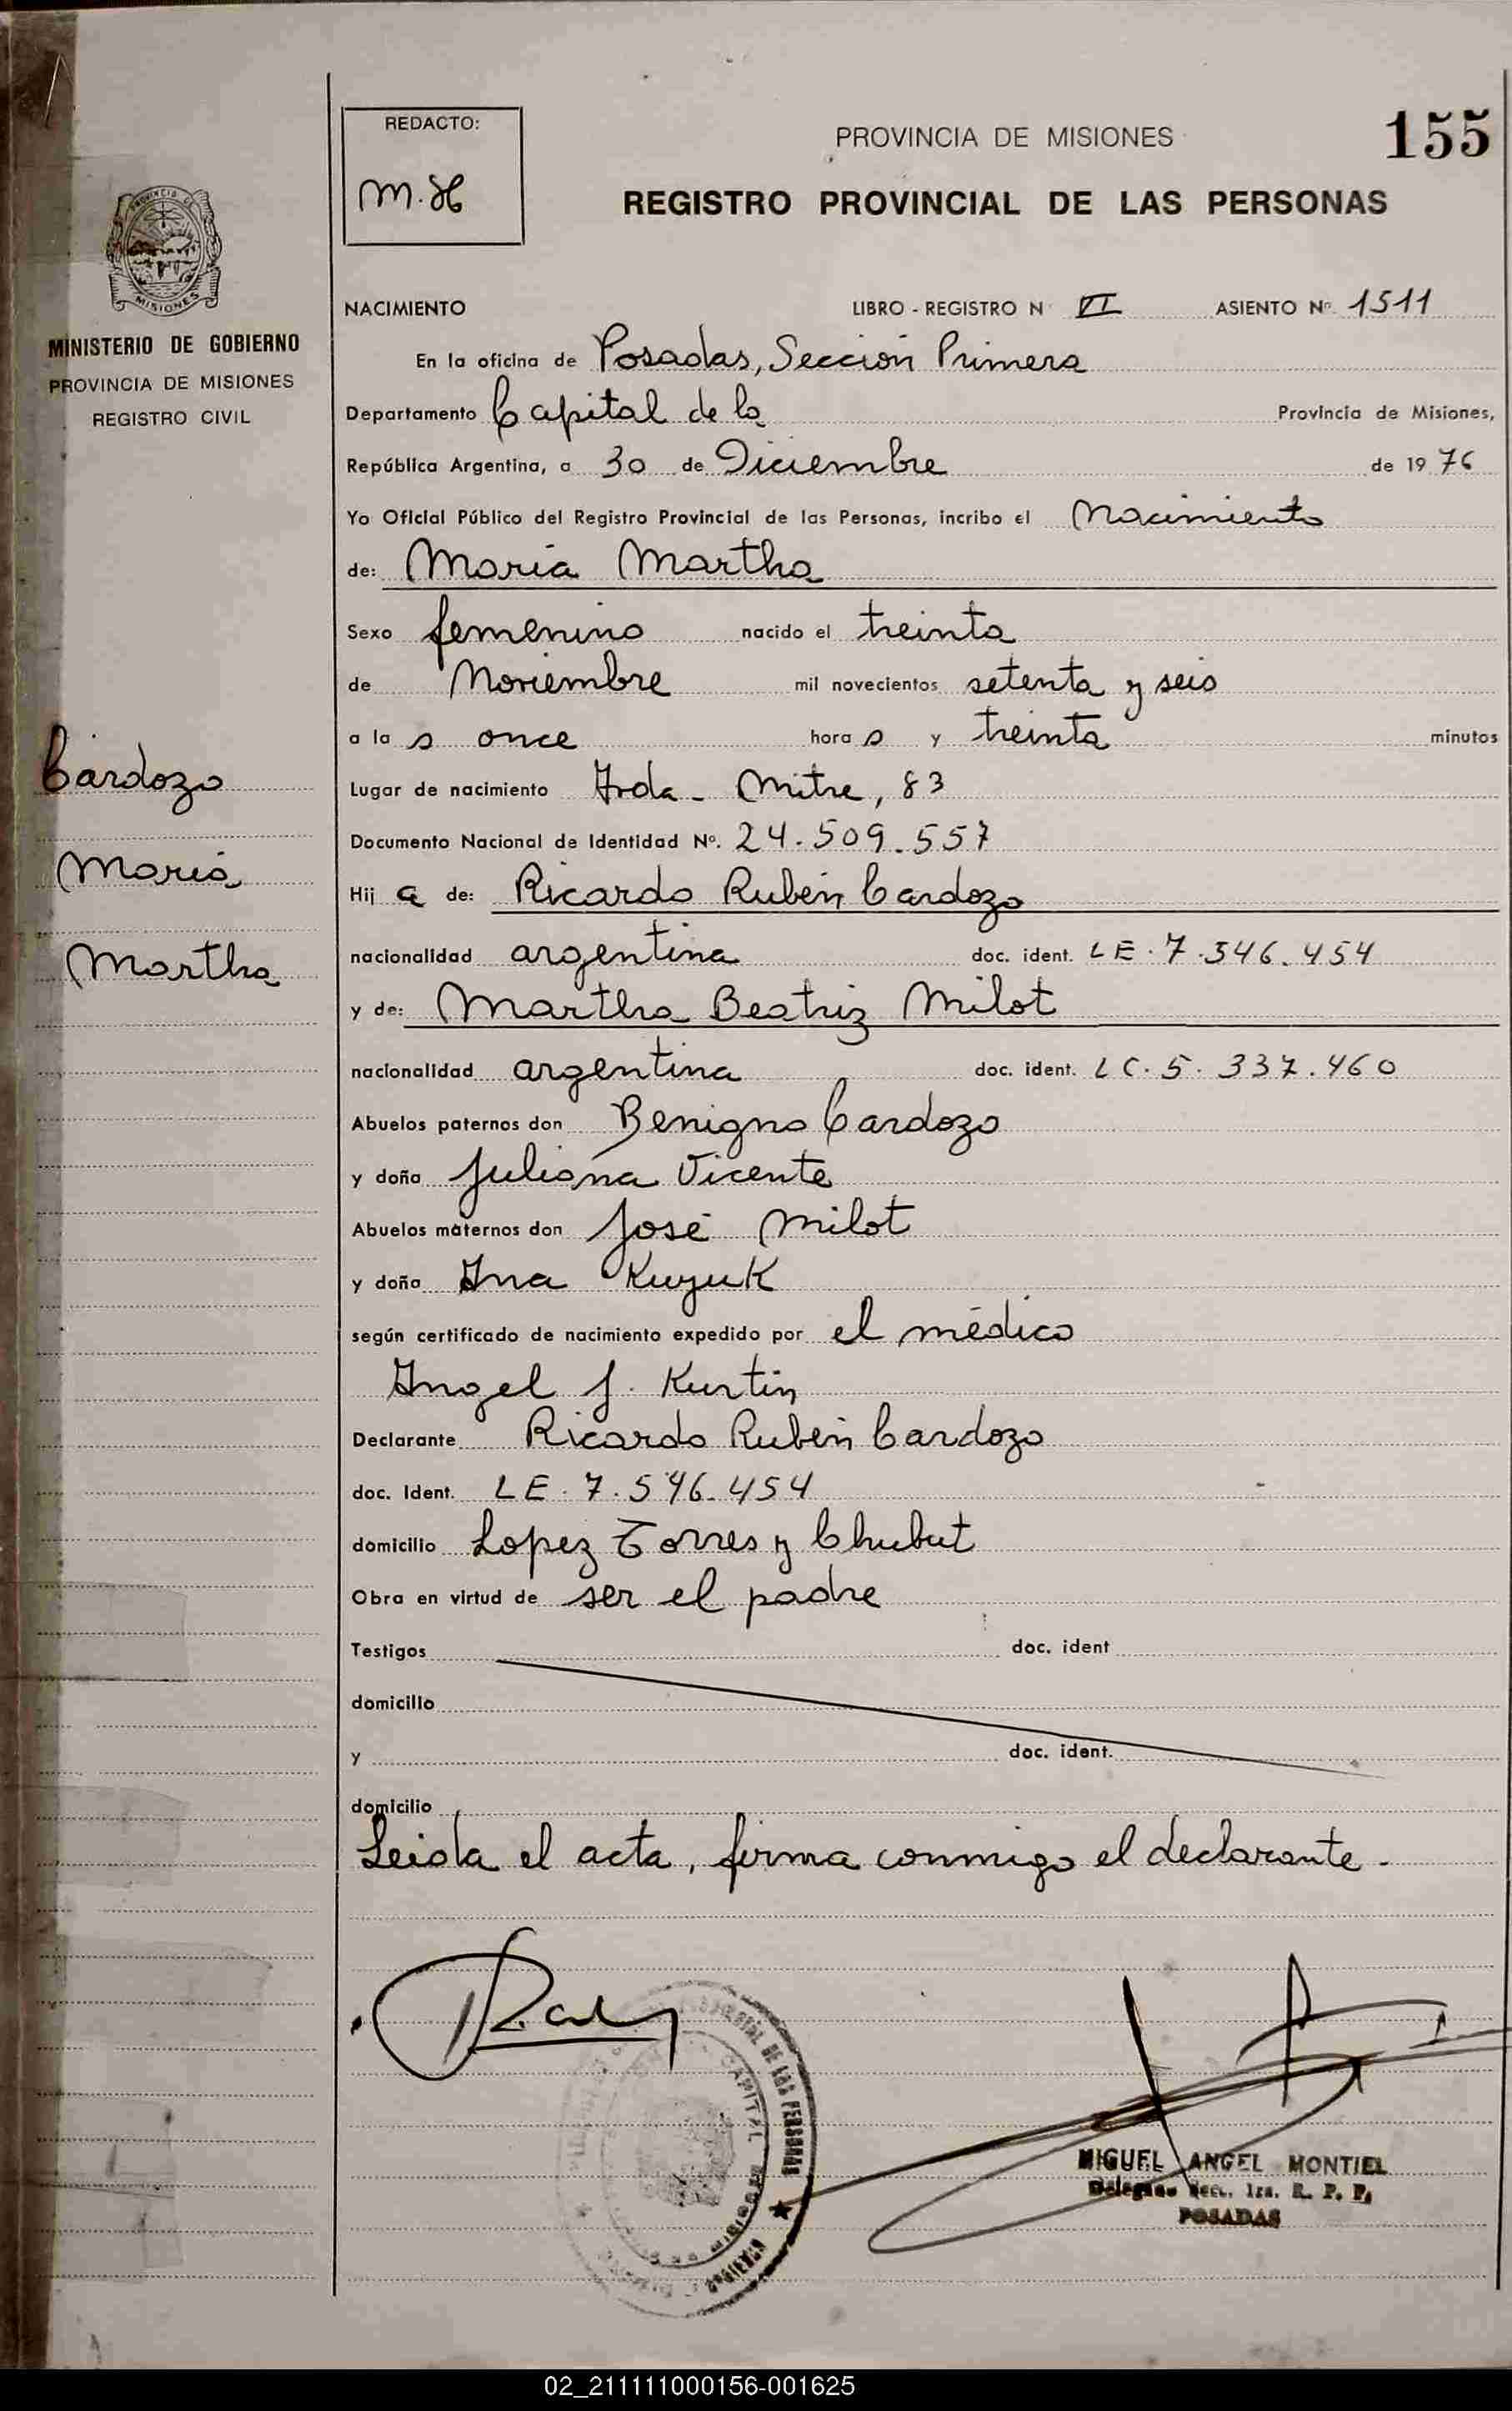 REDACTO:
M.H
PROVINCIA DE MISIONES
155
REGISTRO PROVINCIAL DE LAS PERSONAS
PROVINCIA DE
MISIONES
MINISTERIO DE GOBIERNO
PROVINCIA DE MISIONES
REGISTRO CIVIL
Cardozo
Maria
Martha
NACIMIENTO LIBRO - REGISTRO N VI ASIENTO Nº 1511
En la oficina de Posadas, Sección Primera
Departamento Capital de la Provincia de Misiones,
República Argentina, a 30 de Diciembre de 19 76
Yo Oficial Público del Registro Provincial de las Personas, incribo el Nacimiento
de: Maria Martha
Sexo femenino nacido el treinta
de Noviembre mil novecientos setenta y seis
a la s once hora s y treinta minutos
Lugar de nacimiento Avda. Mitre, 83
Documento Nacional de Identidad Nº. 24.509.557
Hij a de: Ricardo Rubén Cardozo
nacionalidad argentina doc. ident. LE. 7.546.454
y de: Martha Beatriz Milot
nacionalidad argentina doc. ident. LC. 5. 337.460
Abuelos paternos don Benigno Cardozo
y doña Juliana Vicente
Abuelos maternos don José Milot
y doña Ana Kuyuk
según certificado de nacimiento expedido por el médico
Angel J. Kurtin
Declarante Ricardo Rubén Cardozo
doc. Ident. LE. 7.546.454
domicilio Lopez Torres y Chubut
Obra en virtud de ser el padre
Testigos doc. ident
domicilio
y doc. ident.
domicilio
Leida el acta, firma conmigo el declarante.
DE LAS PERSONAS
CAPITAL
MIGUEL ANGEL MONTIEL
Delegado Secc. 1ra. R. P. P.
POSADAS
02_211111000156-001625